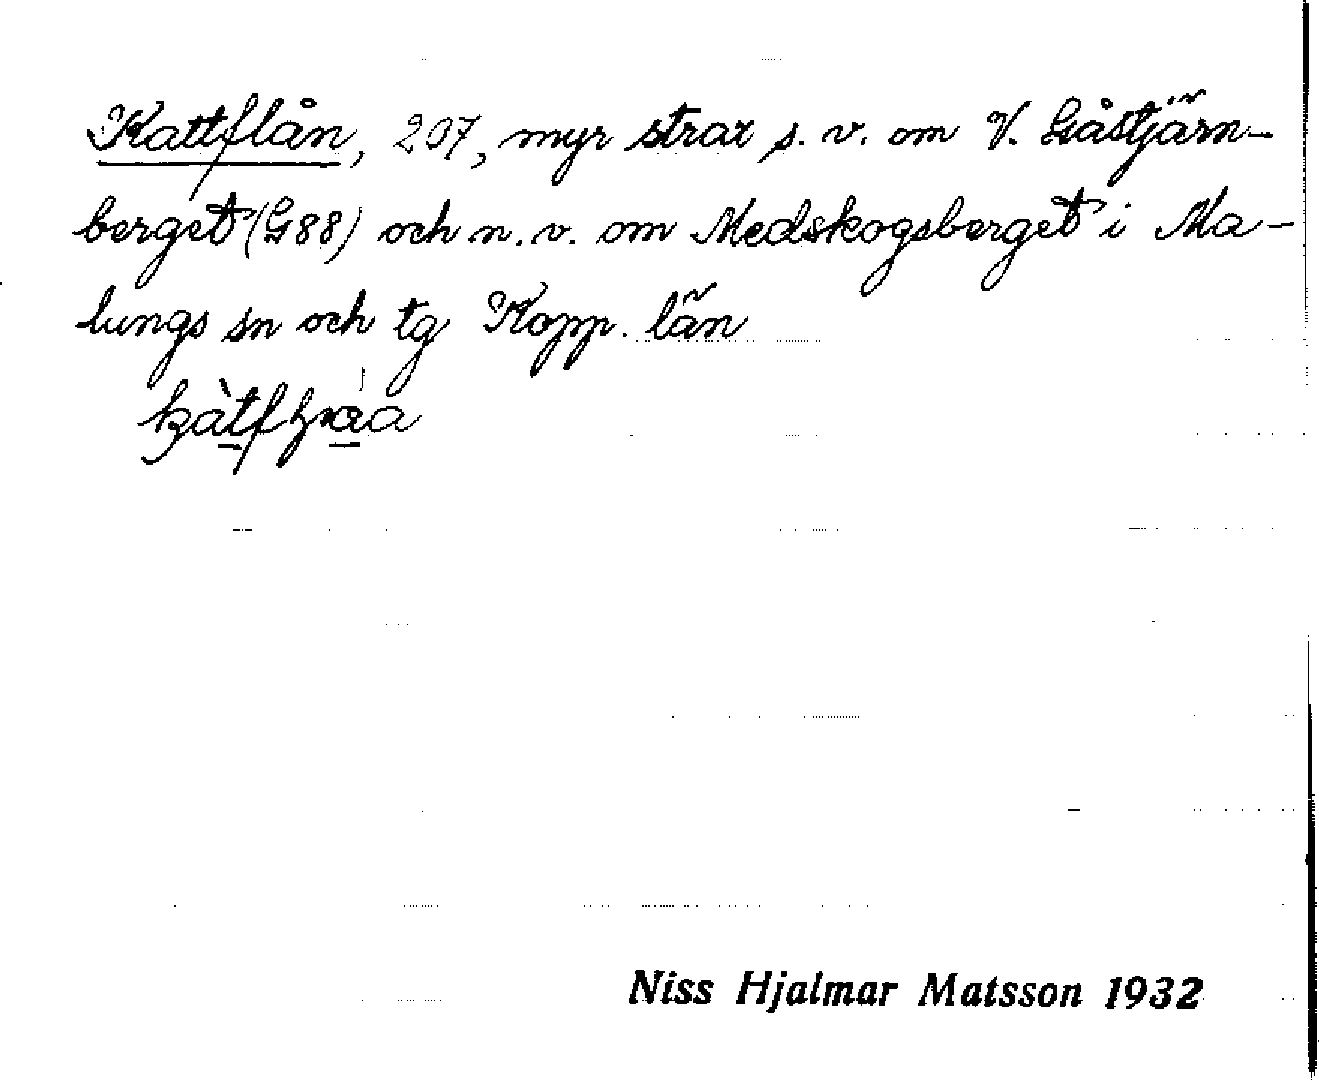 Kattflån, 207, myr strax s. v. om V. Gåstjärn-
berget (G88) och n. v. om Medskogsberget i Ma-
lungs sn och tg Kopp. län
Niss Hjalmar Matsson 1932